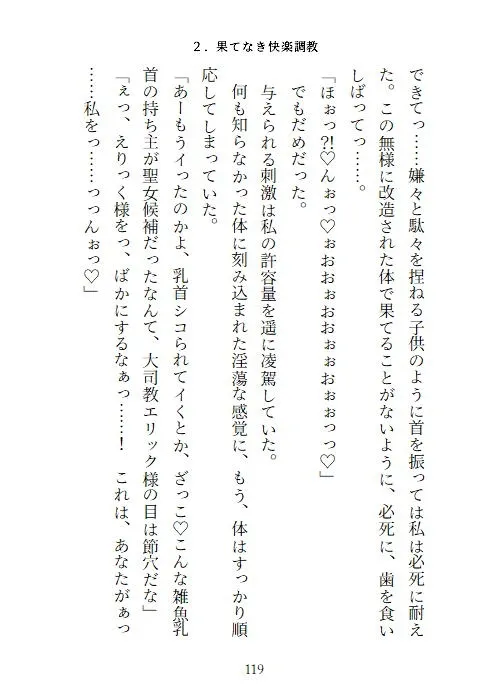 2．果てなき快楽調教
できてっ……嫌々と駄々を捏ねる子供のように首を振っては私は必死に耐え
た。この無様に改造された体で果てることがないように、必死に、歯を食い
しばってっ……。
「ほぉっ⁈♡んぉっ♡ぉおおぉおおぉぉおぉぉっっ♡」
でもだめだった。
与えられる刺激は私の許容量を遥に凌駕していた。
何も知らなかった体に刻み込まれた淫蕩な感覚に、もう、体はすっかり順
応してしまっていた。
「あーもうイったのかよ、乳首シコられてイくとか、ざっこ♡こんな雑魚乳
首の持ち主が聖女候補だったなんて、大司教エリック様の目は節穴だな」
「ぇっ、えりっく様をっ、ばかにするなぁっ……！　これは、あなたがぁっ
……私をっ……っっんぉっ♡」
119